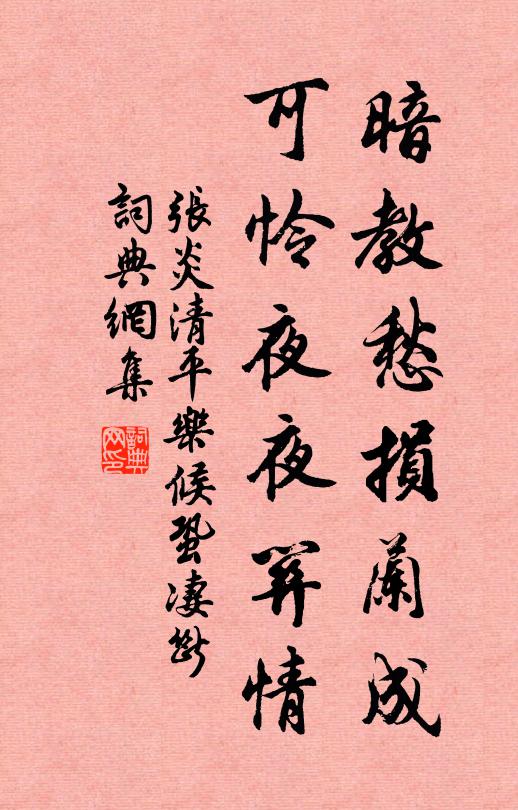 暗教愁損蘭成
可怜夜夜関情
張炎清平樂候蛩凄斷
詞典網集
詞典網印